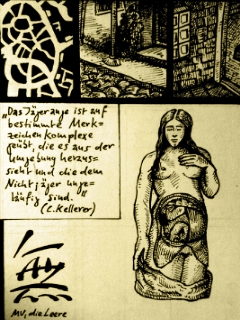 „Das Jägerauge ist auf
bestimmte Merk=
zeichenkomplexe
geübt, die es aus der
Umgebung heraus=
sieht und die dem
Nichtjäger unge=
läufig sind."
(C. Kellerer)
MU, die Leere